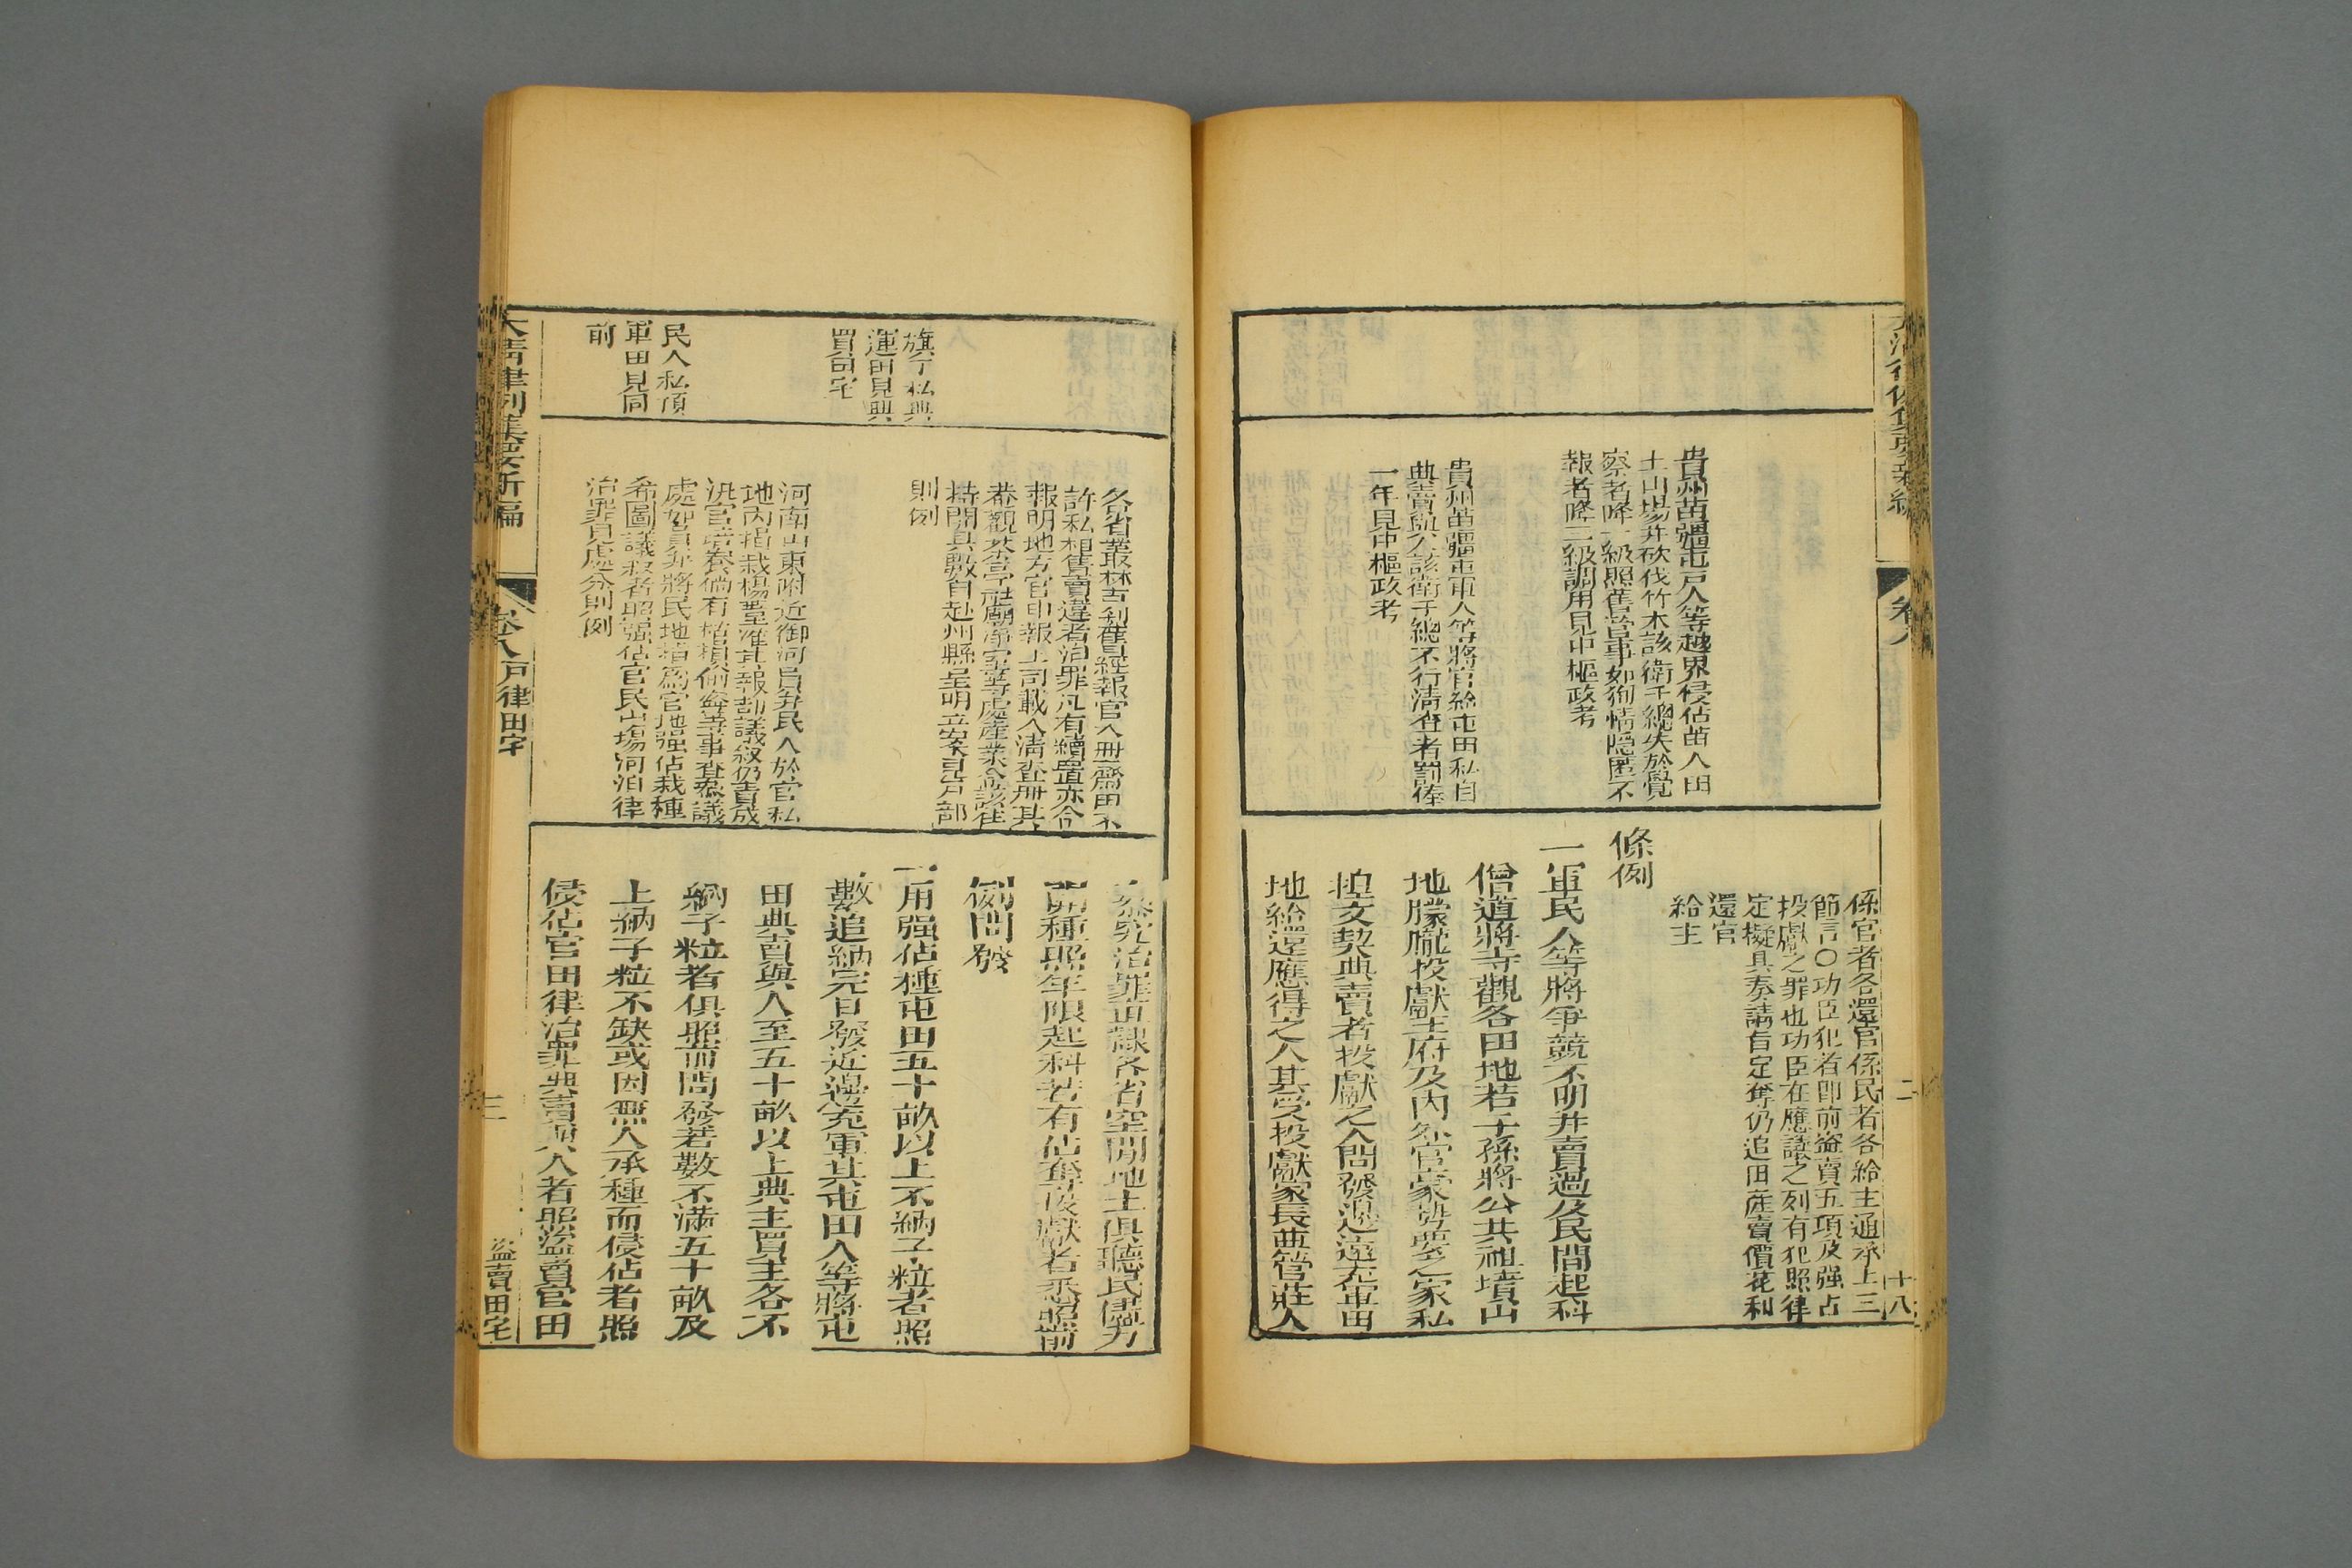 貴州苗疆屯戶人等越界侵佔苗人田
土山場并砍伐竹木該衛千總失於覺
察者降一級照舊管事如狥情隱匿不
報者降二級調用見中樞政考
貴州苗疆屯軍人等將官給屯田私自
典賣與人該衛千總不行清查者罰俸
一年見中樞政考
係官者各還官係民者各給主通承上三
節言○功臣犯者即前盜賣五項及强占
投獻之罪也功臣在應議之列有犯照律
定擬具奏請旨定奪仍追田産賣價花利
還官
給主
條例
一軍民人等將爭競不明并賣過及民間起科
僧道將寺觀各田地若子孫將公共祖墳山
地朦朧投獻王府及內外官豪勢要之家私
捏文契典賣者投獻之人問發邊遠充軍田
地給還應得之人其受投獻家長並管莊人
卷八
二
十八
旗丁私典
運田見典
買田宅
民人私頂
軍田見同
前
各省叢林古刹舊經報官入冊齋田不
許私相售賣違者治罪凡有續置亦令
報明地方官申報上司載入清查冊其
菴觀茶亭社廟淨室等處產業令該住
持開具數目赴州縣呈明立案見戶部
則例
河南山東附近御河員弁民人於官私
地內捐栽楊葦准其報部議叙仍責成
汛官培養倘有揑報偷盜等事查叅議
處如員弁將民地揑爲官地强佔栽種
希圖議叙者照强佔官民山場河泊律
治罪見處分則例
叅究治罪直隸各省空閒地土俱聽民儘力
開種照年限起科若有佔奪投獻者悉照前
例問發
一用强佔種屯田五十畝以上不納子粒者照
數追納完日發近邊充軍其屯田人等將屯
田典賣與人至五十畝以上典主買主各不
納子粒者俱照前問發若數不滿五十畝及
上納子粒不缺或因無人承種而侵佔者照
侵佔官田律治罪典賣與人者照盜賣官田
大清律例集要新編
卷八戶律田宅
三
盜賣田宅